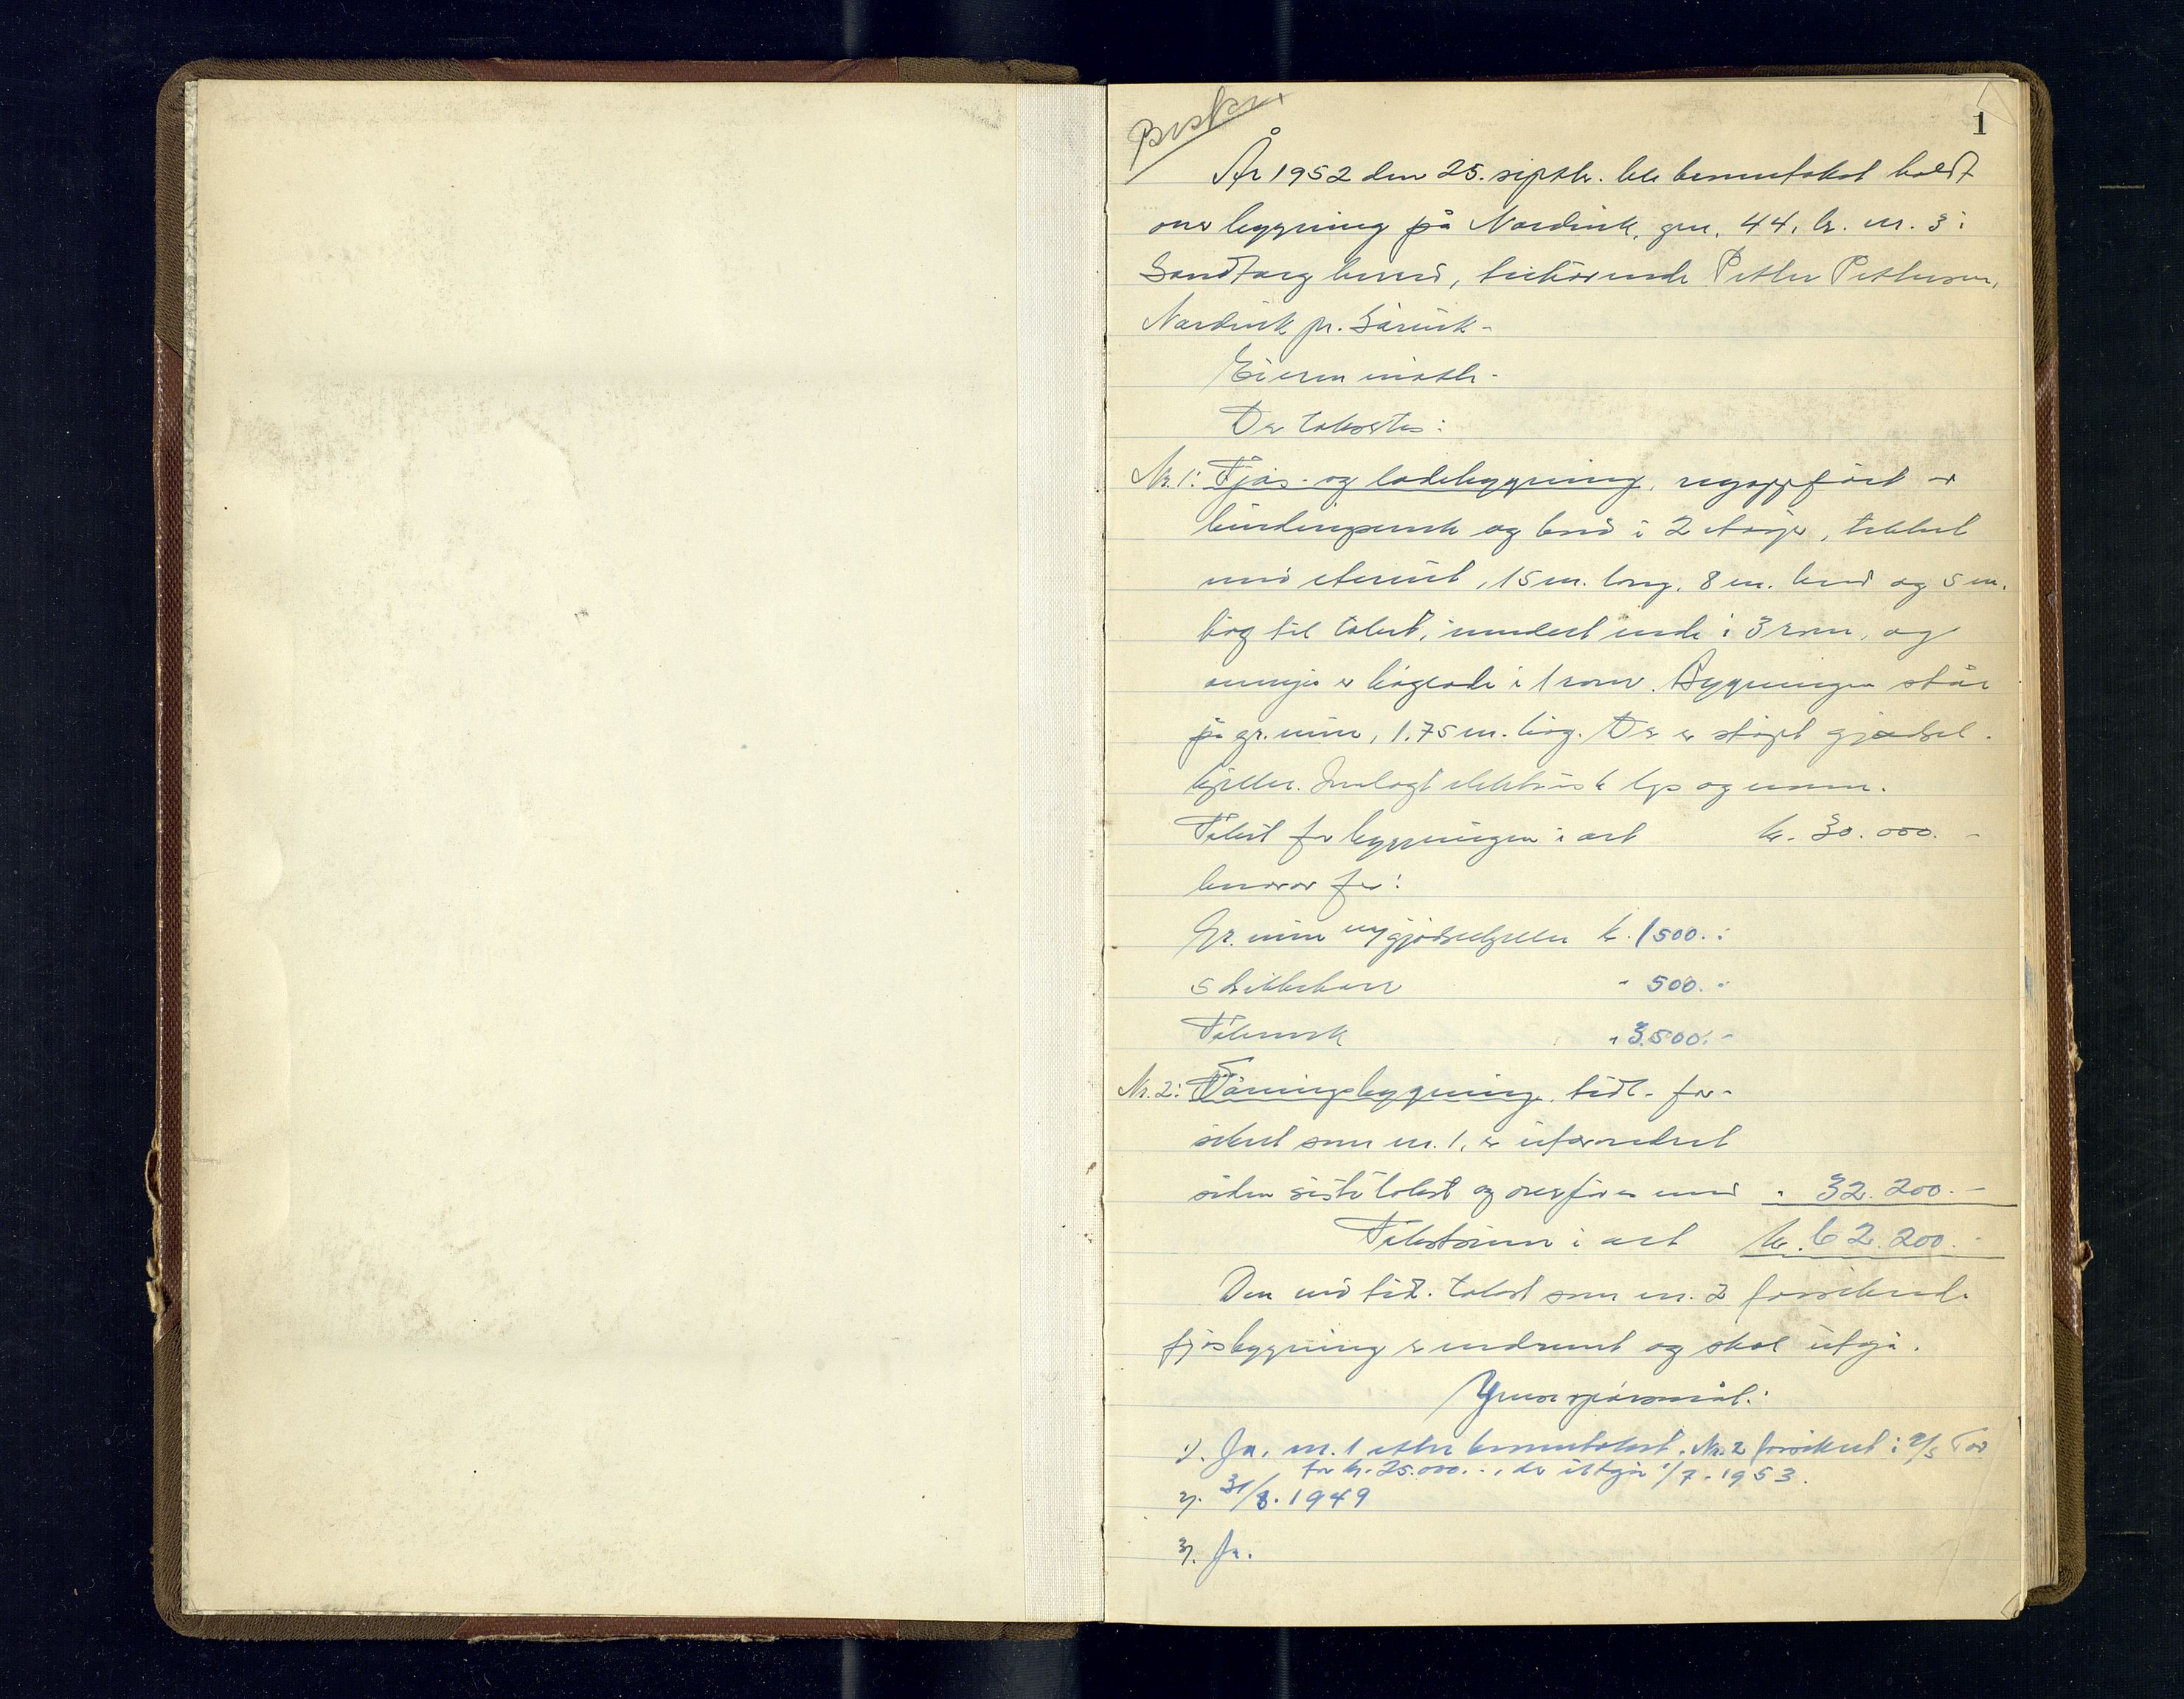 1
År 1952 den 25. septbr. ble branntakst holdt
over bygning på Nordvik, gnr. 44, br. nr. 3 i
Sandtorg herred, tilhørende Petter Pettersen,
Nordvik pr. Sørvik-
Eieren møtte -
Der takstes:
Nr. 1: Fjøs- og ladebygning, nyoppført av
bindingsverk og bord i 2 etasjer, tekket
med eternit, 15 m. lang, 8 m. bred og 5 m.
høg til takst, innredet nede i 3 rom, og
ovenpå er høylade i 1 rom. Bygningen står
på gr. mur, 1.75 m. høg. Der er støpt gjødsel-
kjeller. Innlagt elektrisk lys og vann.
Takst for bygningen i alt kr. 30.000.-
hvorav for:
Gr. mur og gjødselkjeller kr. 1500.-
5 drikkekar " 500.-
Takverk " 3.500.-
Nr. 2: Våningsbygning, tidl. for-
sikret som nr. 1, er uforandret
siden siste takst og overføres med " 32.200.-
Takstsum i alt kr. 62.200.-
Den ved tid. takst som nr. 2 forsikrede
fjøsbygning er nedrevet og skal utgå.
1). Ja, nr. 1 etter branntakst. Nr. 2 forsikret i
for kr. 25.000.-, der utgår 1/7. 1953.
2). 31/8. 1949
3). Ja.